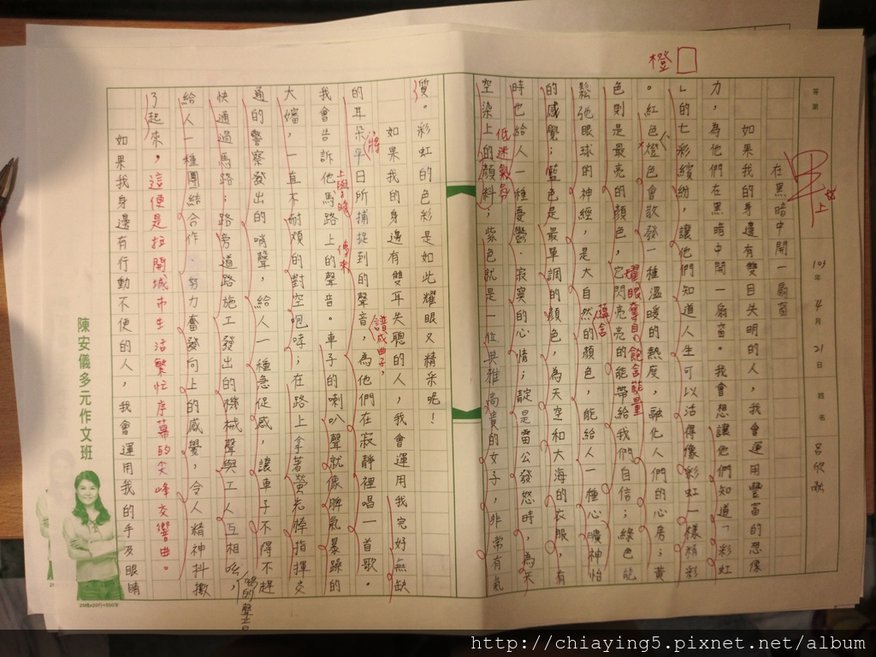 橙
103年4月21日 姓名 呂欣
上
在黑暗中開一扇窗
如果我的身邊有雙目失明的人,我會運用豐富的想像
力,為他們在黑暗中開一扇窗。我會想讓他們知道「彩虹
」的七彩繽紛,讓他們知道人生可以活得像彩虹一樣精彩
。紅色燈色會散發一種溫暖的熱度,融化人們的心房;黃
色則是最亮的顏色,它閃亮亮的能帶給我們自信;綠色能
耀眼奪目飽含能量
鬆弛眼球的神經,是大自然的顏色,能給人一種心曠神怡
的感覺;藍色是最單調的顏色,為天空和大海的衣服,有
時也給人一種憂鬱、寂寞的心情;靛是雷公發怒時,為天
低迷氣氛
空染上的顏料;紫色就是一位典雅高貴的女子,非常有氣
質。彩虹的色彩是如此耀眼又精采呢!
如果我的身邊有雙耳失聰的人,我會運用我完好無缺
的耳朵平日所捕捉到的聲音,為他們在寂靜裡唱一首歌。
將
譜成曲子,
我會告訴他馬路上的聲音。車子的喇叭聲就像脾氣暴躁的
大嬸,一直不耐煩的對空咆哮;在路上拿著螢光棒指揮交
通的警察發出的哨聲,給人一種急促感,讓車子不得不趕
快通過馬路;路旁道路施工發出的機械聲與工人互相吆
喝的聲音
給人一種團結合作、努力奮發向上的感覺,令人精神抖擻
了起來,這便是拉開城市生活繁忙序幕的尖峰交響曲。
如果我身邊有行動不便的人,我會運用我的手及眼睛
陳安儀多元作文班
http://chiaying5.pixnet.net/album